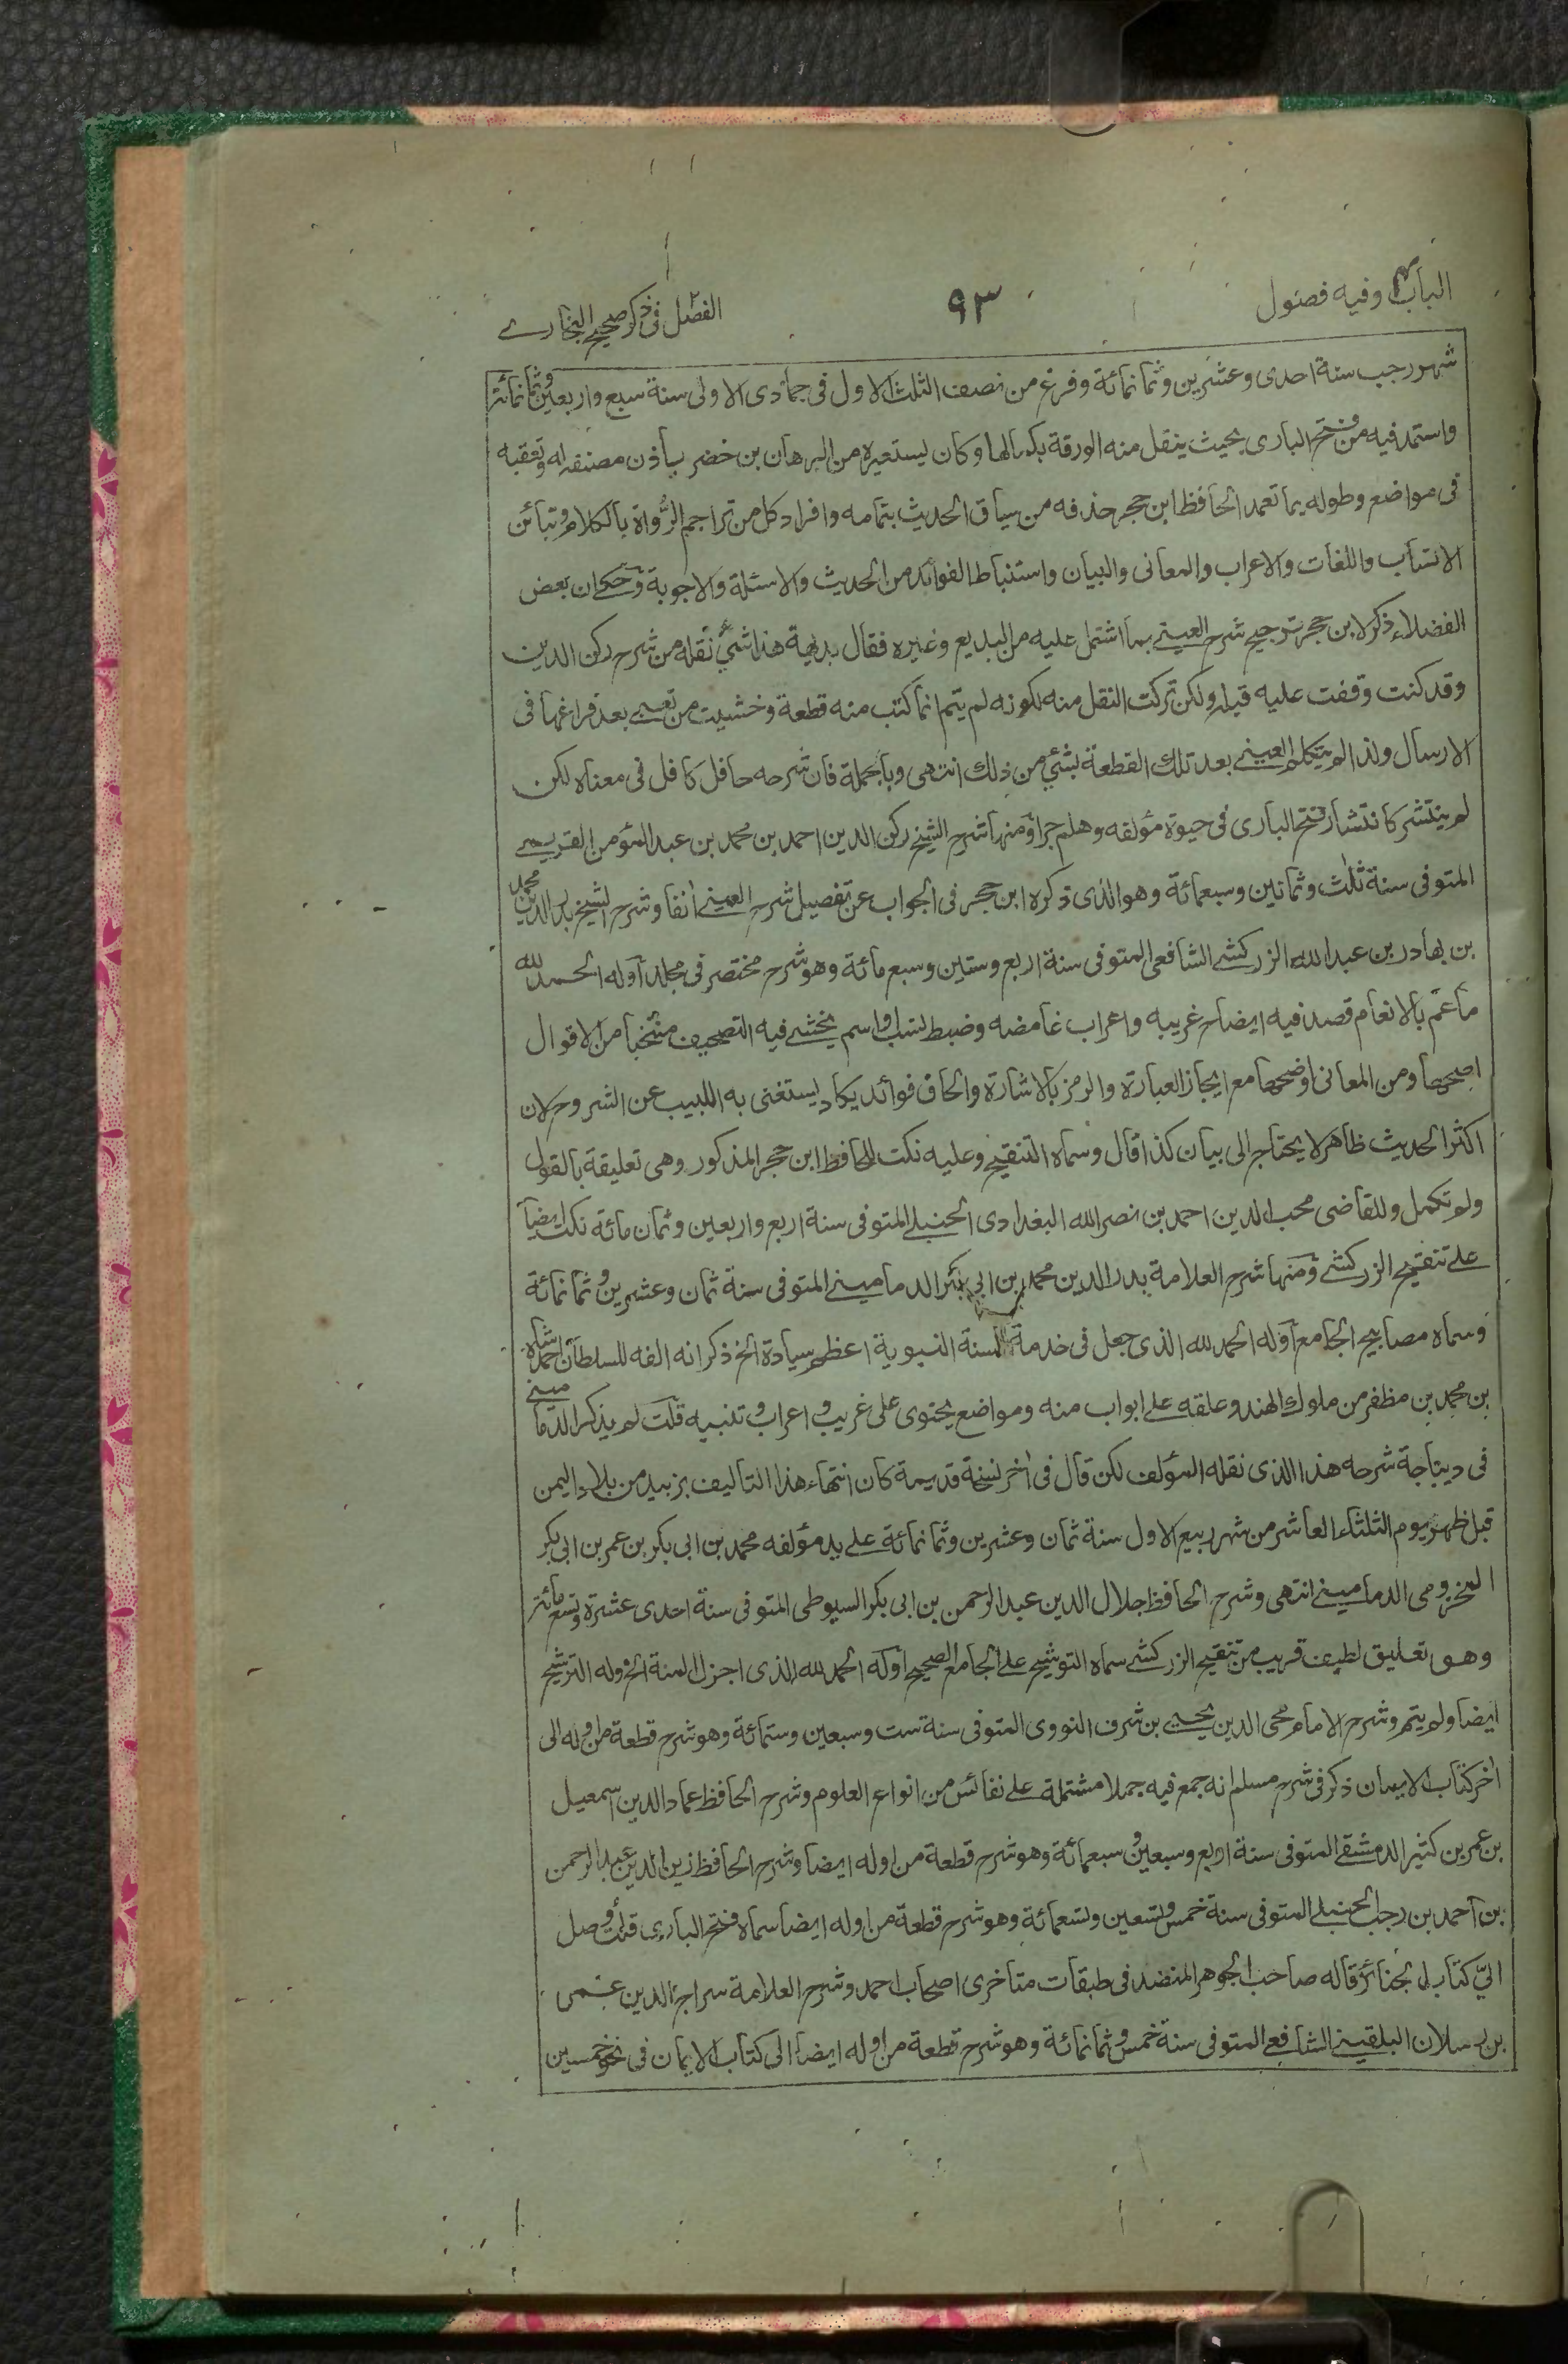 الباب وفيه فصول
٩٣
الفصل فى ذكر صحيح البخارے
شهر رجب سنة احدى وعشرين وثمانمائة وفرغ من نصف الثلث الاول فى جمادى الاولى سنة سبع واربعين وثمانمائة
واستمد فيه من فتح البارى بحيث ينقل منه الورقة بكمالها وكان يستعيره من البرهان بن خضر باذن مصنفه له وتعقبه
فى مواضع وطوله بما تعمد الحافظ ابن حجر حذفه من سياق الحديث بتمامه وافراد كل من تراجم الرواة بالكلام وتبائن
الانساب واللغات والاعراب والمعانى والبيان واستنباط الفوائد من الحديث والاسئلة والاجوبة وحكى ان بعض
الفضلاء ذكر لابن حجر ترجيح شرح العينے بما اشتمل عليه من البديع وغيره فقال بديهة هذا شئ نقله من شرح ركن الدين
وقد كنت وقفت عليه قبله ولكن تركت النقل منه لكونه لم يتم انما كتب منه قطعة وخشيت من تعبے بعد فراغها فى
الارسال ولذا لم يتكلم العينے بعد تلك القطعة بشئ من ذلك انتهى وبالجملة فان شرحه حافل كافل فى معناه لكن
لم ينتشر كانتشار فتح البارى فى حيوة مؤلفه وهلم جرا ومنها شرح الشيخ ركن الدين احمد بن محمد بن عبد المؤمن القريمے
المتوفى سنة ثلٰث وثمانين وسبعمائة وهو الذى ذكره ابن حجر فى الجواب عن تفصيل شرح العينے انفا وشرح الشيخ بدر الدين محمد
بن بهادر بن عبد الله الزركشے الشافعى المتوفى سنة اربع وستين وسبع مائة وهو شرح مختصر فى مجلد اوله الحمد لله
ما عم بالانعام قصد فيه ايضاح غريبه واعراب غامضه وضبط نسب او اسم يخشے فيه التصحيف منتخبا من الاقوال
اصحها ومن المعانى اوضحها مع ايجاز العبارة والرمز بالاشارة والحاق فوائد يكاد يستغنى به اللبيب عن الشروح لان
اكثر الحديث ظاهر لا يحتاج الى بيان كذا قال وسماه التنقيح وعليه نكت للحافظ ابن حجر المذكور وهى تعليقة بالقول
ولم تكمل وللقاضى محب الدين احمد بن نصر الله البغدادى الحنبلے المتوفى سنة اربع واربعين وثمان مائة نكت ايضا
علے تنقيح الزركشے ومنها شرح العلامة بدر الدين محمد بن ابى بكر الدمامينے المتوفى سنة ثمان وعشرين وثمانمائة
وسماه مصابيح الجامع اوله الحمد لله الذى جعل فى خدمة السنة النبوية اعظم سيادة الخ ذكر انه الفه للسلطان احمد شاه
بن محمد بن مظفر من ملوك الهند وعلقه علے ابواب منه ومواضع يحتوى على غريب واعراب وتنبيه قلت لم يذكر الدمامينے
فى ديباجة شرحه هذا الذى نقله المؤلف لكن قال فى اٰخر نسخة قديمة كان انتهاء هذا التاليف بزبيد من بلاد اليمن
قبل ظهر يوم الثلثاء العاشر من شهر ربيع الاول سنة ثمان وعشرين وثمانمائة علے يد مؤلفه محمد بن ابى بكر بن عمر بن ابى بكر
المخزومى الدمامينے انتهى وشرح الحافظ جلال الدين عبد الرحمن بن ابى بكر السيوطى المتوفى سنة احدى عشرة وتسع مائة
وهو تعليق لطيف قريب من تنقيح الزركشے سماه التوشيح علے الجامع الصحيح اوله الحمد لله الذى اجزل المنة الخ وله الترشيح
ايضا ولم يتم وشرح الامام محى الدين يحيے بن شرف النووى المتوفى سنة ست وسبعين وستمائة وهو شرح قطعة من اوله الى
اخر كتاب الايمان ذكر فى شرح مسلم انه جمع فيه جملا مشتملة علے نفائس من انواع العلوم وشرح الحافظ عماد الدين اسمعيل
بن عمر بن كثير الدمشقے المتوفى سنة اربع وسبعين وسبعمائة وهو شرح قطعة من اوله ايضا وشرح الحافظ زين الدين عبد الرحمن
بن احمد بن رجب الحنبلے المتوفى سنة خمس وتسعين وتسعمائة وهو شرح قطعة من اوله ايضا سماه فتح البارى قلت وصل
الىّ كتاب الجنائز قاله صاحب الجوهر المنضد فى طبقات متاخرى اصحاب احمد وشرح العلامة سراج الدين عمر
بن رسلان البلقينے الشافعے المتوفى سنة خمس وثمانمائة وهو شرح قطعة من اوله ايضا الى كتاب الايمان فى نحو خمسين